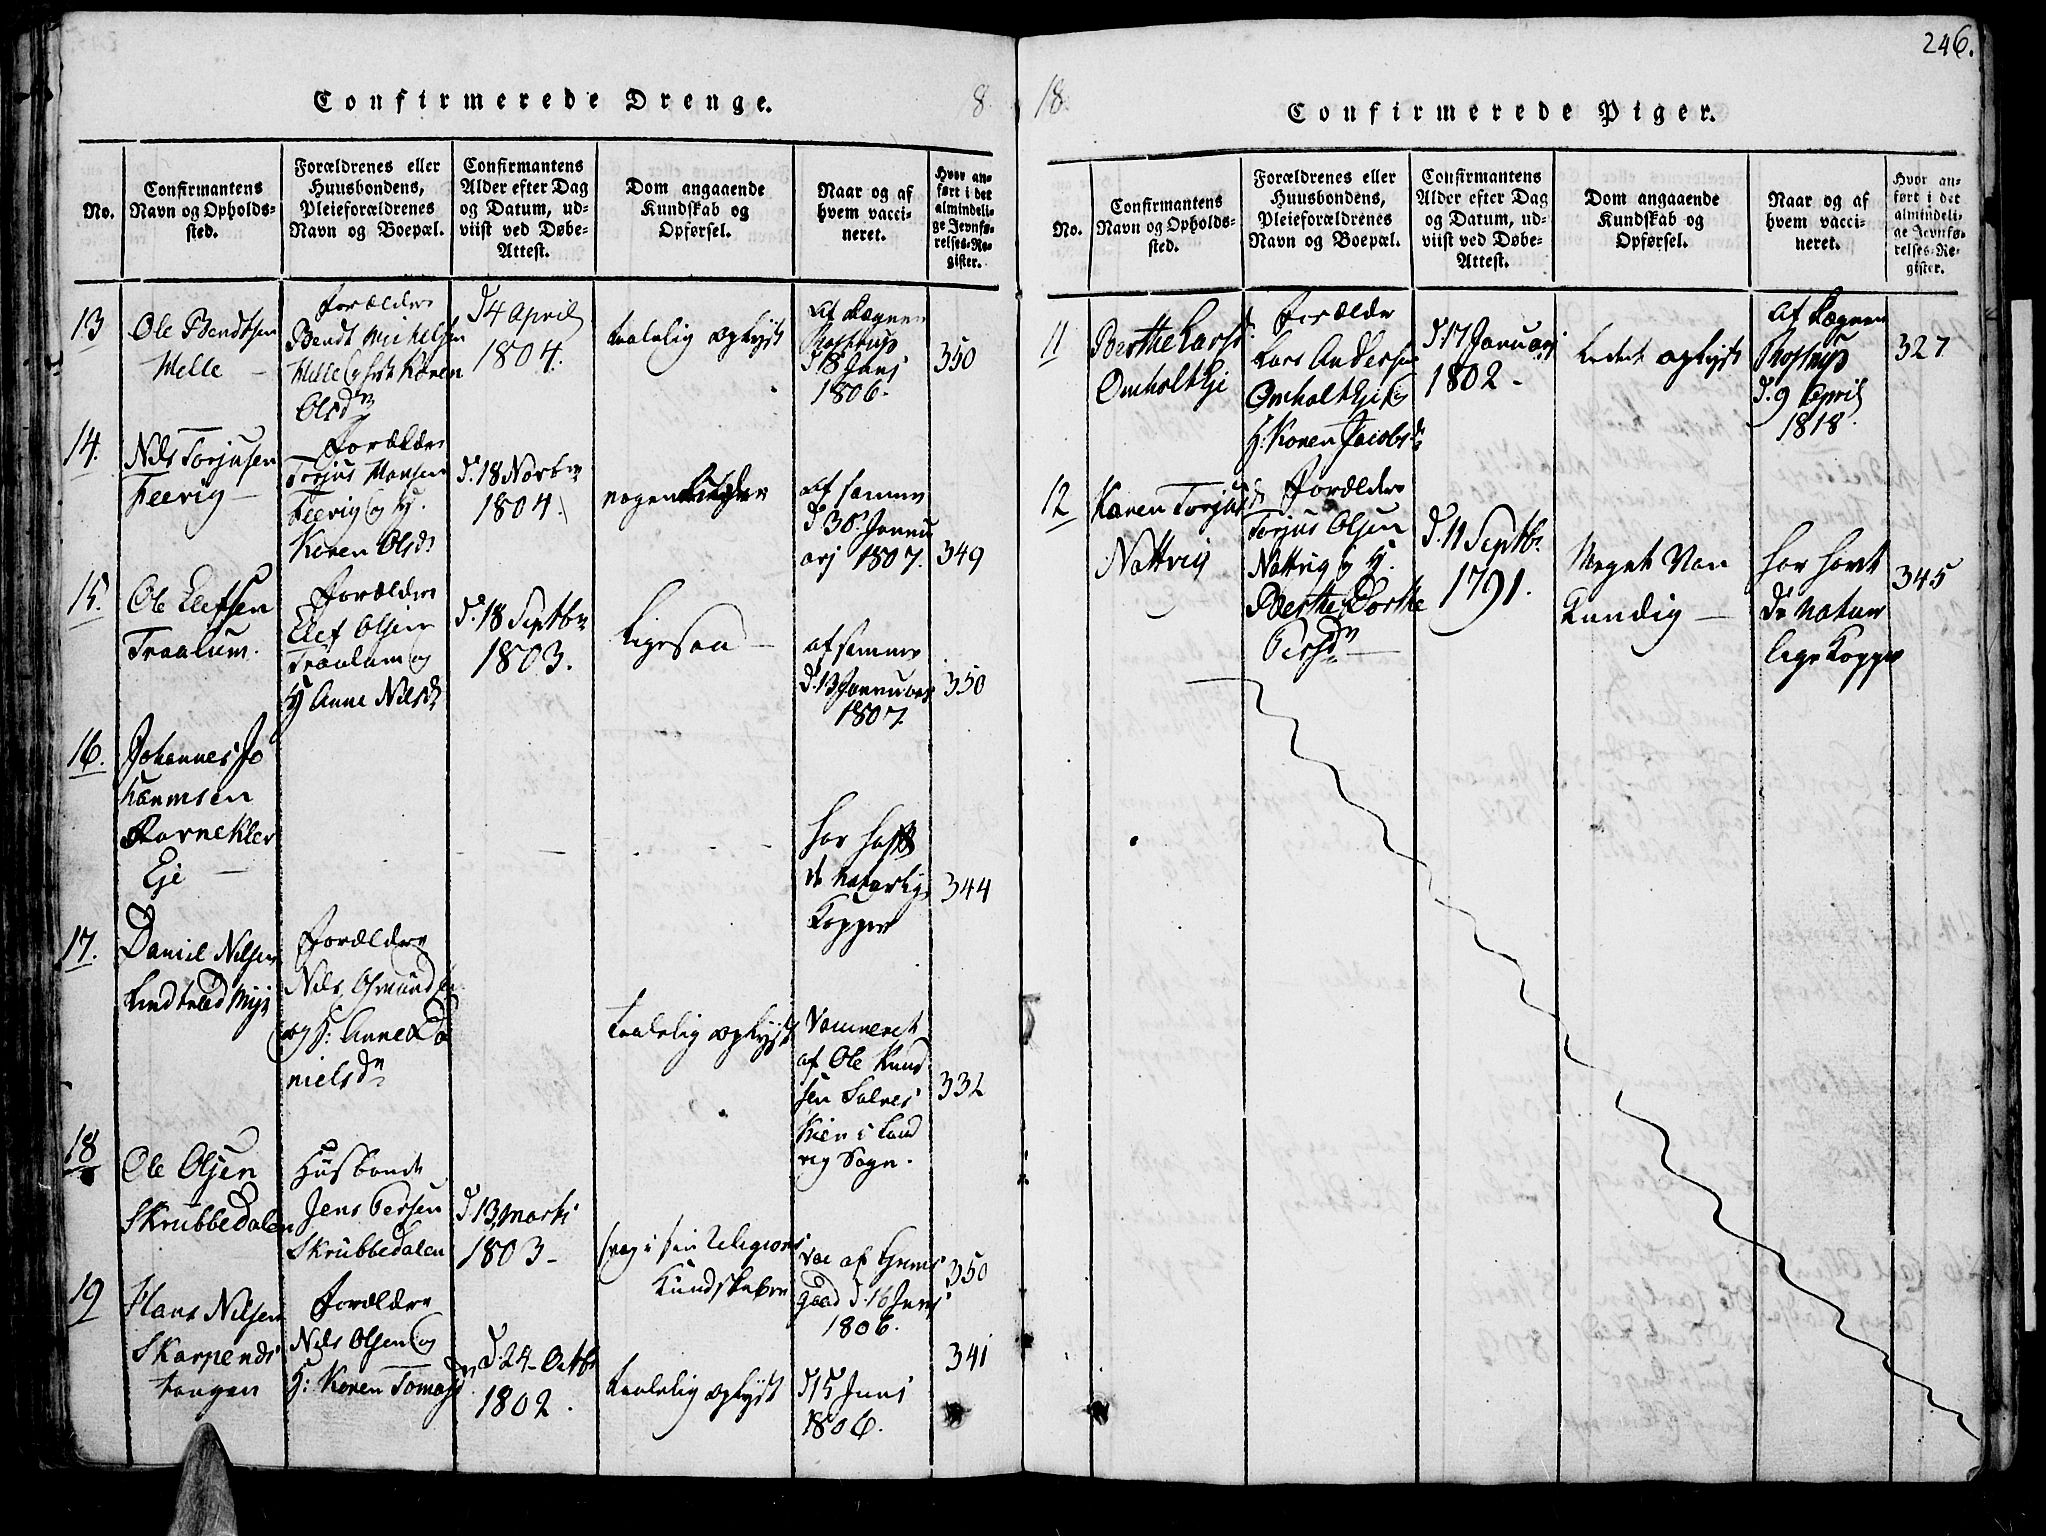 Confirmerede Drenge.
8
No.
Confirmantens
Navn og Opholds-
sted.
Forældrenes eller
Huusbondens,
Pleieforældrenes
Navn og Boepæl.
Confirmantens
Alder efter Dag
og Datum, ud-
viist ved Døbe-
Attest.
Dom angaaende
Kundskab og
Opførsel.
Naar og af
hvem vacci-
neret.
Hvor an-
ført i det
almindeli-
ge Jevnfø-
relses-Re-
gister.
13
Ole Bendtsen
Melle
Forældre
Bendt Michelsen
Melle og
Karen
Olsdr
d 4 April
1804.
taalelig oplyst
af
d 18 Junj
1806.
350
14.
Nils Torjusen
Feevig
Forældre
Torjus Hansen
Feevig og H.
Karen Olsdr
d. 18 Novbr
1804.
nogenledes
af samme
d 30. Janu
arj 1807.
349
15.
Ole Elefsen
Traalum.
Forældre
Elef Olsen
Traalum og
H Anne Nilsdr
d. 18 Septbr
1803.
Ligesaa
af samme
d. 13 Januar
1807.
350
16.
Johannes Jo
hannsen
Eje
har haft
de naturlige
Kopper
344
17.
Daniel Nilsen
Forældre
Nils Osmund
og H: Anne Da
nielsdr
taalelig oplyst
Vaccineret
af Ole Knud
sen
i Land
vig Sogn.
332
18
Ole Olsen
Skrubbedalen
Husbond
Jens Persen
Skrubbedalen
d 13 Marti
1803
svag i sin Religions
Kundskaber
vac af Grems
gaard d. 16 Junj
1806.
350
19
Hans Nilsen
Skarpends
tangen
Forældre
Nils Olsen og
H: Karen Tomasdr
d. 24 Octbr
1802.
taalelig oplyst
d 15 Junj
1806.
341
246.
18.
Confirmerede Piger.
No.
Confirmantens
Navn og Opholds-
sted.
Forældrenes eller
Huusbondens,
Pleieforældrenes
Navn og Boepæl.
Confirmantens
Alder efter Dag
og Datum, ud-
viist ved Døbe-
Attest.
Dom angaaende
Kundskab og
Opførsel.
Naar og af
hvem vacci-
neret.
Hvor an-
ført i det
almindeli-
ge Jevnfø-
relses-Re-
gister.
11
Berthe Larsd.
Omholt Eje
Forældre
Lars Andersen
Omholt Eje og
H: Karen Jacobsdr
d 17 Januarj
1802
oplyst
af
d. 9 April
1818.
327
12
Karen Torjusdr
Nattvig
Forældre
Torjus Olsen
Nattvig og H.
Berthe Dorthe
Persdr
d. 11 Septbr
1791.
Meget Van
kundig
har havt
de natur
lige Kopper
345